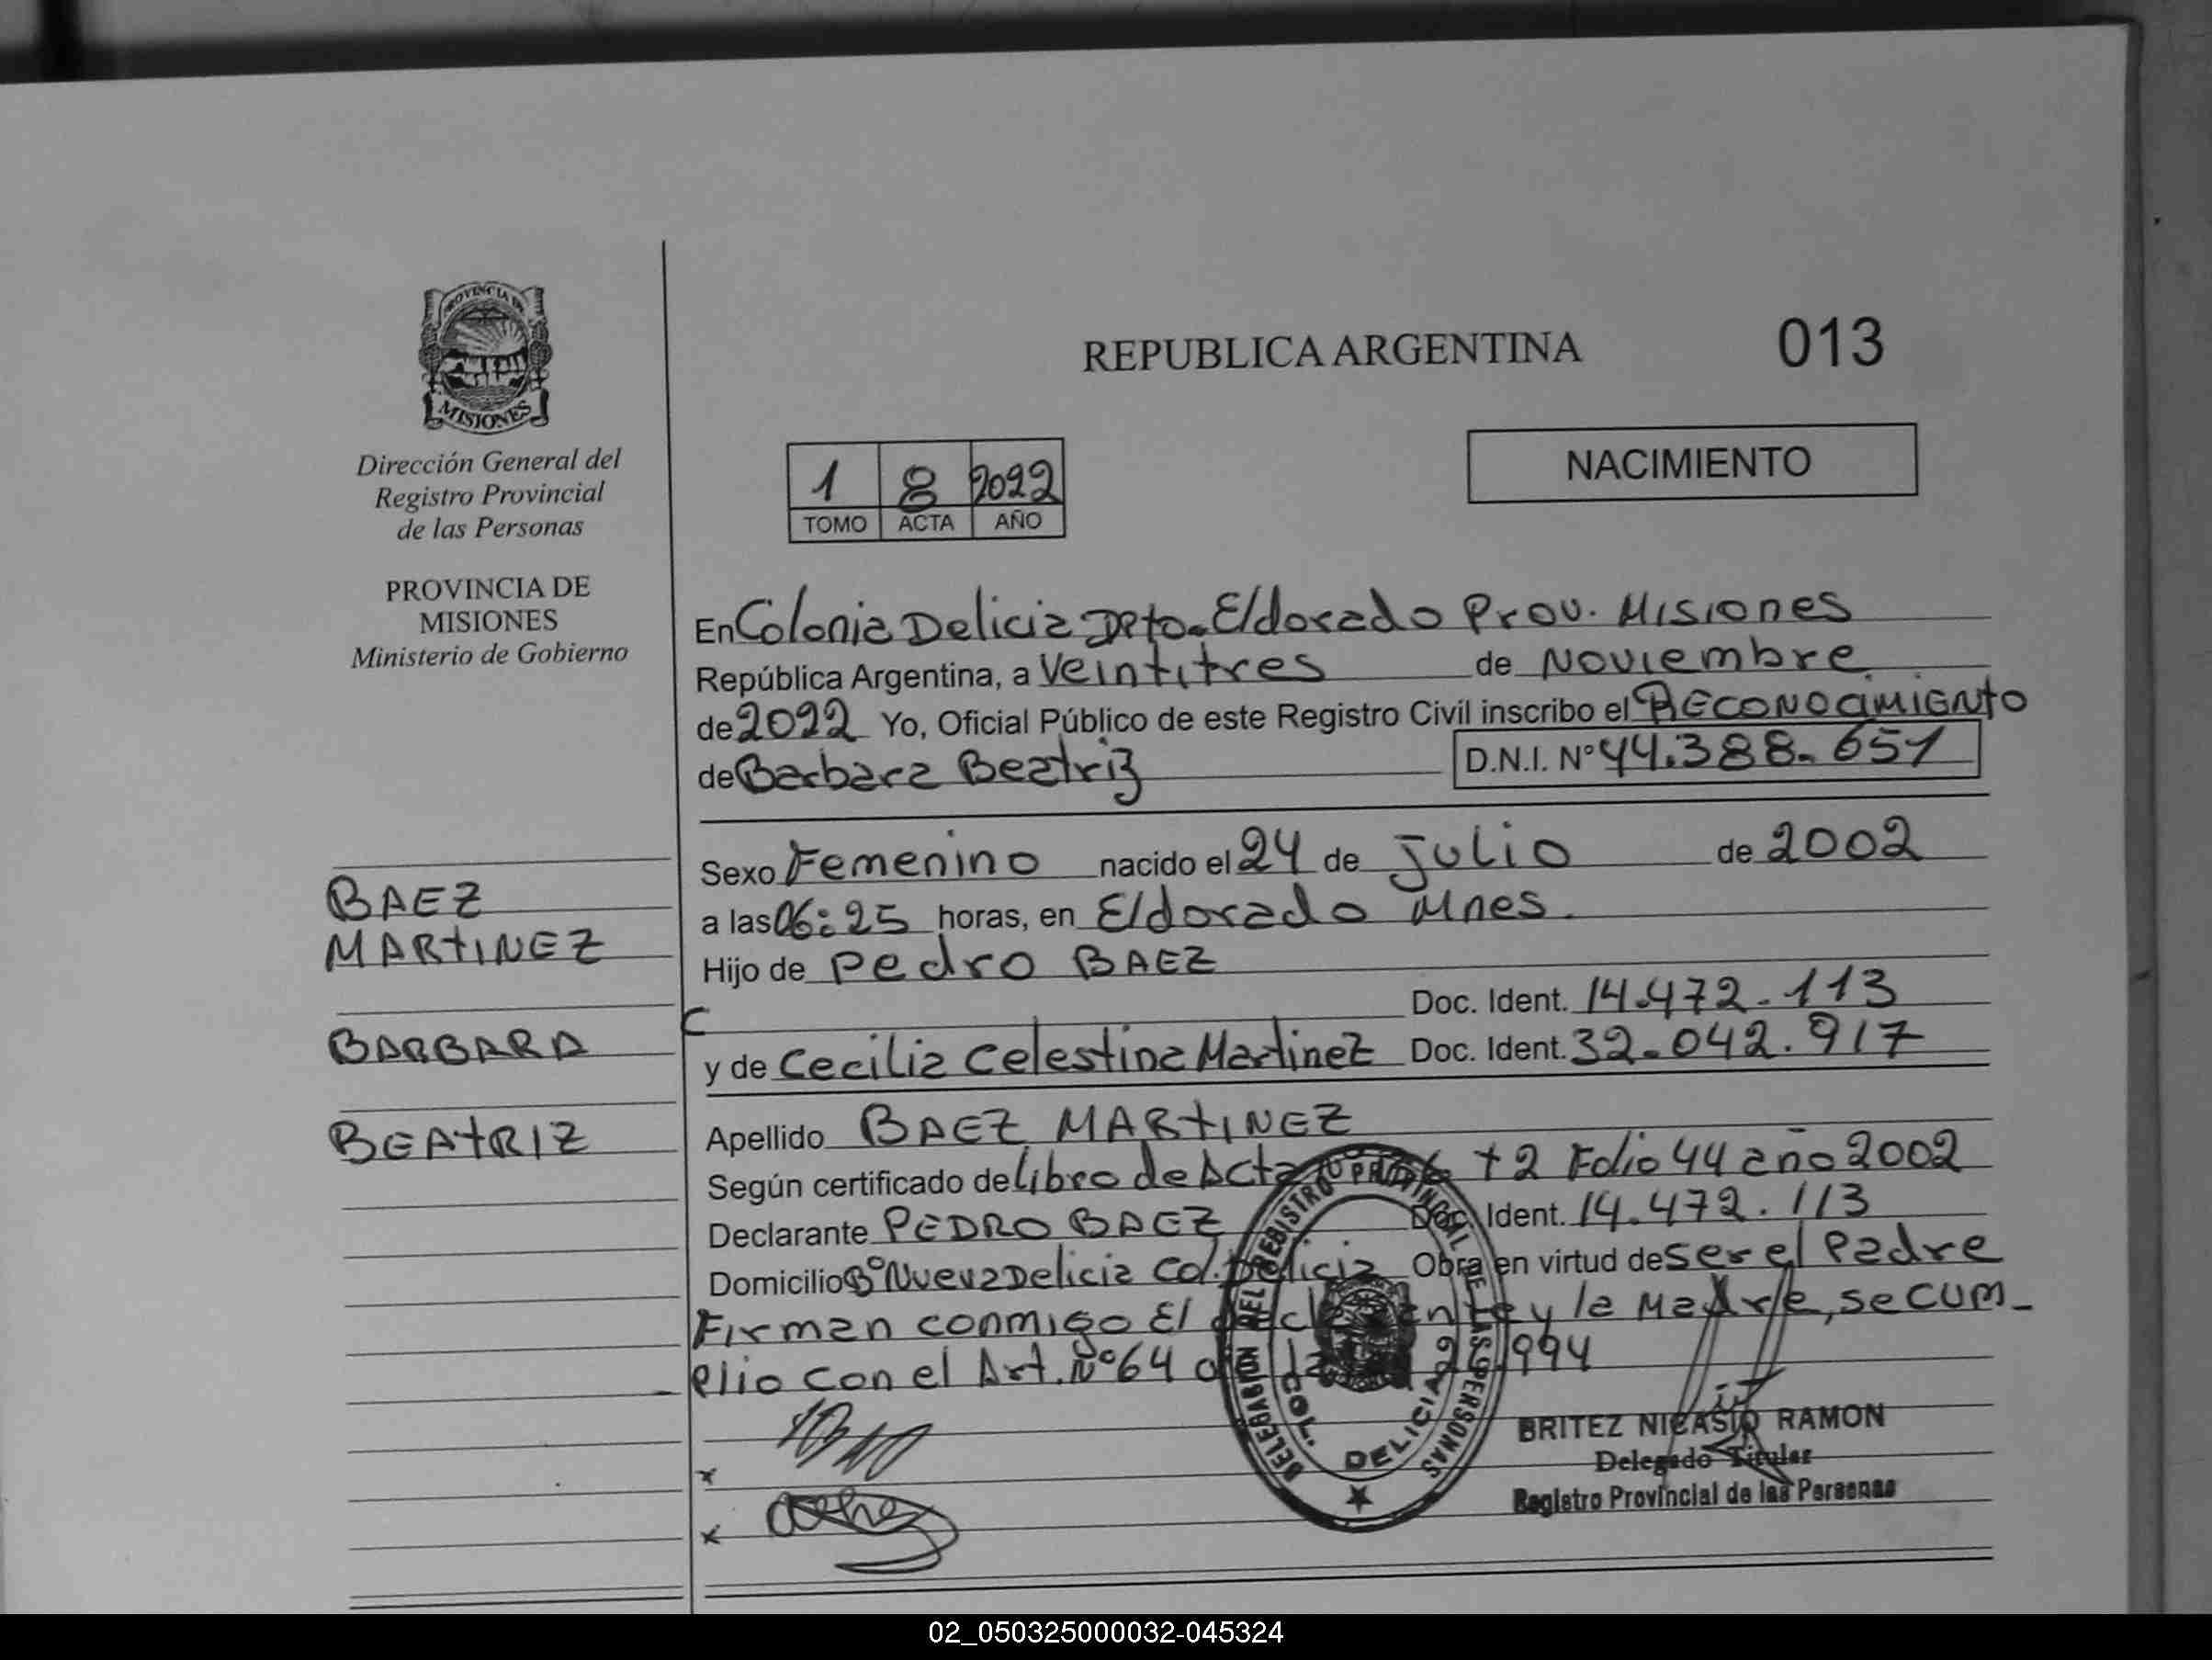 PROVINCIA DE
MISIONES
Dirección General del
Registro Provincial
de las Personas
PROVINCIA DE
MISIONES
Ministerio de Gobierno
BAEZ
MARTINEZ
BARBARA
BEATRIZ
REPUBLICA ARGENTINA
013
NACIMIENTO
1 8 2022
TOMO ACTA AÑO
En Colonia Delicia Dpto. Eldorado Prov. Misiones
República Argentina, a Veintitres de Noviembre
de 2022 Yo, Oficial Público de este Registro Civil inscribo el RECONOCIMIENTO
de Barbara Beatriz D.N.I. Nº 44.388.651
Sexo Femenino nacido el 24 de Julio de 2002
a las 06:25 horas, en Eldorado Mnes.
Hijo de Pedro BAEZ
Doc. Ident. 14.472.113
y de Cecilia Celestina Martinez Doc. Ident. 32.042.917
Apellido BAEZ MARTINEZ
Según certificado de Libro de Acta T 2 Folio 44 año 2002
Declarante PEDRO BAEZ Doc. Ident. 14.472.113
Domicilio Bº Nueva Delicia Col. Delicia Obra en virtud de ser el Padre
Firman conmigo El declarante y la Madre, se cum_
_plio con el Art. Nº 64 26.994
DELEGACION DEL REGISTRO PROVINCIAL DE LAS PERSONAS
COL. DELICIA
BRITEZ NICASIO RAMON
Delegado Titular
Registro Provincial de las Personas
02_050325000032-045324